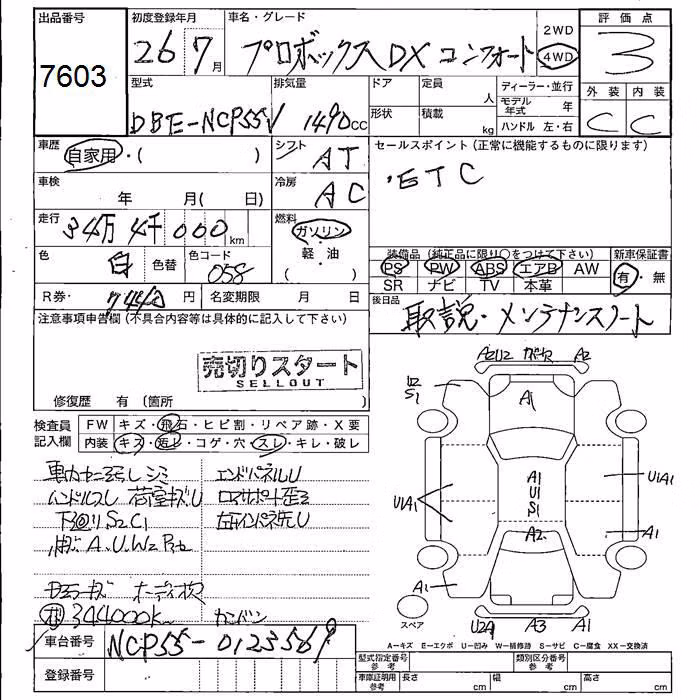 出品番号
7603
初度登録年月
26 7月
車名・グレード
プロボックスDX コンフォート
2WD
4WD
評価点
3
型式
DBE-NCP55V
排気量
1490cc
ドア
定員
人
形状
積載
kg
ディーラー・並行
モデル年式 年
ハンドル 左・右
外装 内装
C C
車歴
自家用・( )
シフト
AT
車検
年 月( 日)
冷房
AC
セールスポイント(正常に機能するものに限ります)
・ETC
走行
34万4千000km
燃料
ガソリン
軽・油
( )
色
白
色替
色コード
058
装備品(純正品に限り○をつけて下さい)
PS PW ABS エアB AW
SR ナビ TV 本革
新車保証書
有・無
R券・ 7440円
名変期限 月 日
後日品
取説・メンテナンスノート
注意事項申告欄(不具合内容等は具体的に記入して下さい)
売切りスタート
SELLOUT
修復歴 有(箇所 )
検査員記入欄
FW キズ・飛石・ヒビ割・リペア跡・X要
内装 キズ・汚れ・コゲ・穴・スレ・キレ・破レ
シミ
ハンドルスレ 荷室キズU
下回りS2C1
A.U.W2
エンドパネルU
コアサポート歪ミ
左インパネ先U
344000K
A2U2 A2
U2
S1
A1
A1
U1
S1
A2
U1A1
U1A1
A1
A1
スペア
U2A1 A3 A1
A-キズ E-エクボ U-凹み W-補修跡 S-サビ C-腐食 XX-交換済
車台番号
NCP55-0123569
登録番号
型式指定番号参考
類別区分番号参考
車庫証明用参考
長さ cm
幅 cm
高さ cm